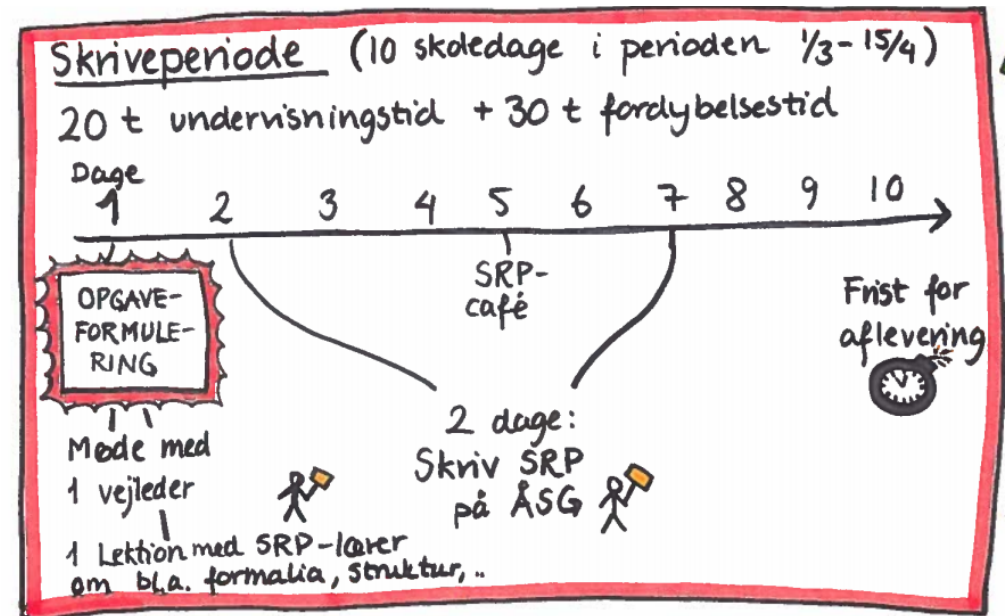 Skriveperiode (10 skoledage i perioden 1/3-15/4)
20 t undervisningstid + 30 t fordybelsestid
Dage
1 2 3 4 5 6 7 8 9 10
SRP-
café
OPGAVE-
FORMULE-
RING
Frist for
aflevering
Møde med
1 vejleder
2 dage:
Skriv SRP
på ÅSG
1 Lektion med SRP-lærer
om bl.a. formalia, struktur, ..